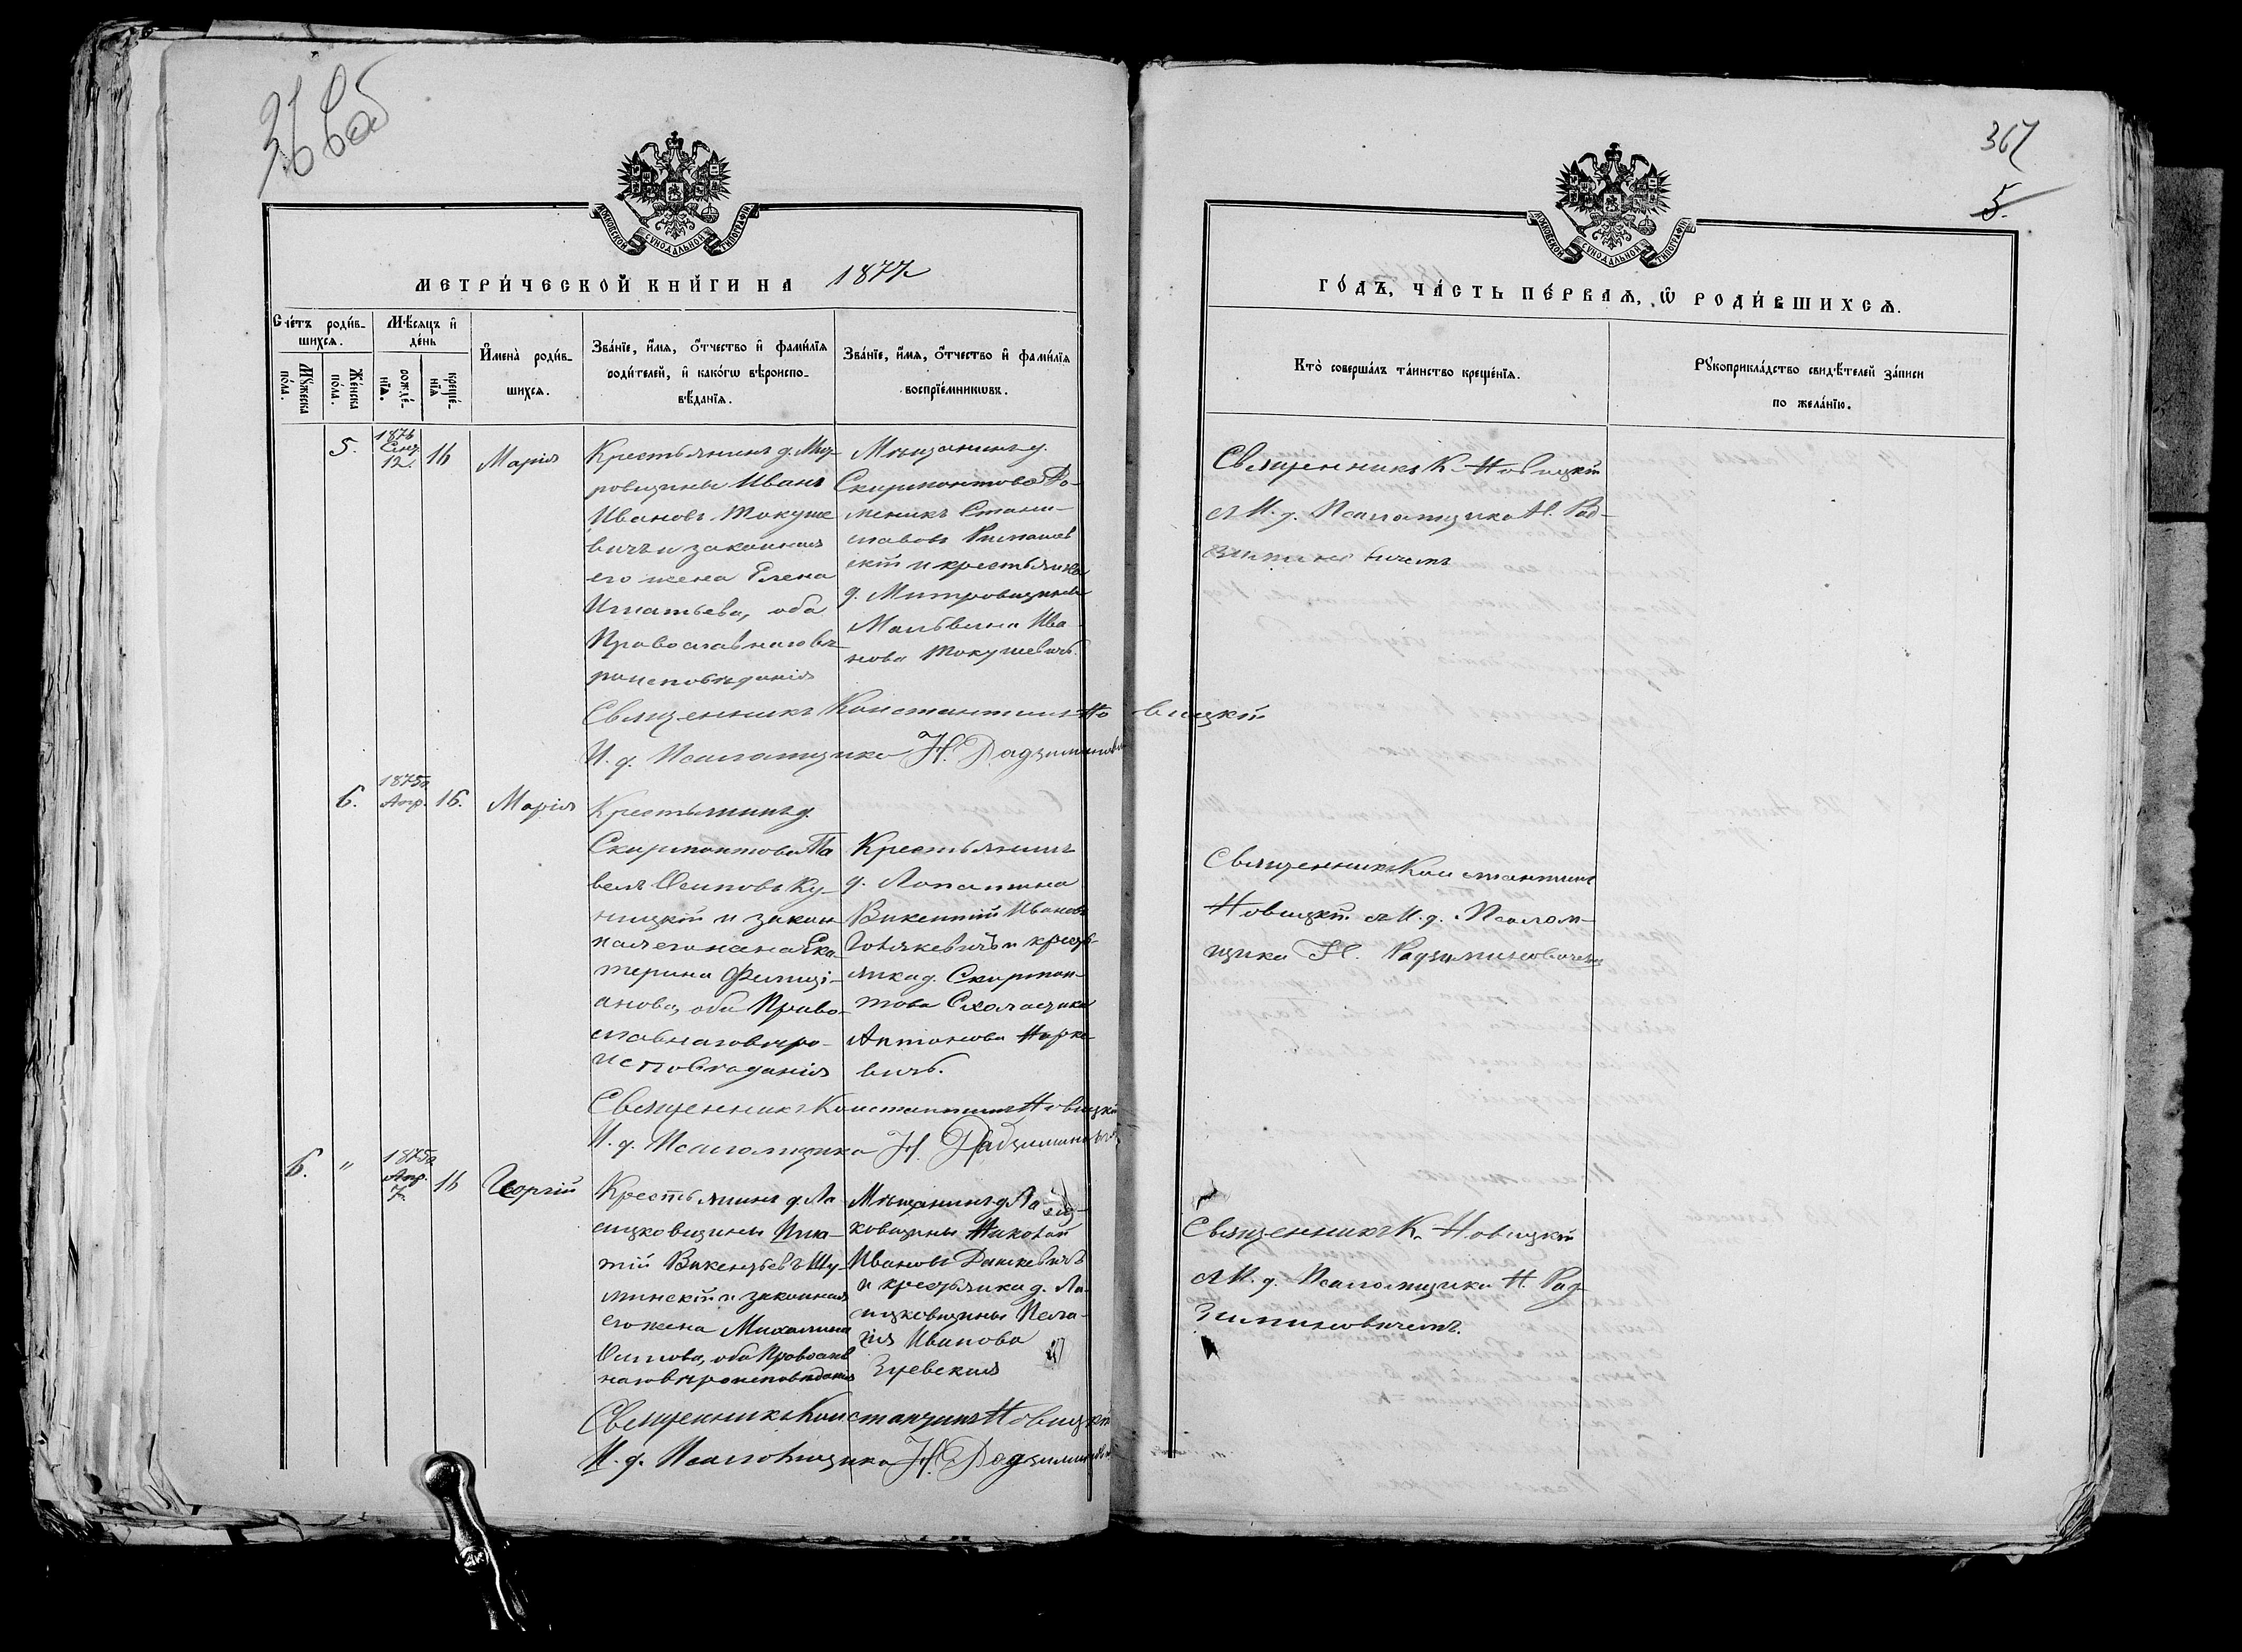 366 об
МОСКОВСКОЙ СУНОДАЛЬНОЙ ТИПОГРАФІИ
МЕТРИ́ЧЕСКОЙ КНИ́ГИ НА 1877
Сче́тъ роди́в-
шихся.
Му́жеска
по́ла.
Же́нска
по́ла.
Мѣ́сяцъ и҆
де́нь
рожде́-
нїѧ.
креще́-
нїѧ
И҆мена̀ роди́в-
шихся.
Зва́нїе, и҆́мѧ, ѻ҆́тчество и҆ фами́лїѧ
роди́телей, и҆ како́гѡ вѣроиспо-
вѣ́данїѧ.
Зва́нїе, и҆́мѧ, ѻ҆́тчество и҆ фами́лїѧ
воспрїе́мникѡвъ.
5.
1876
12.
16
Марія
Крестьянинъ д. Мит-
ровщины Иванъ
Ивановъ Токуше
вичъ и законная
его жена Елена
Игнатьева, оба
Православнаго вѣ
роисповѣданія
Мѣщанинъ д.
Скирмонтова До-
меникъ Стани-
славовъ
скій и крестьянка
д. Митровщины
Мальвина Ива
нова Токушевичъ.
Священникъ Константинъ Новицкій
И. д. Псаломщика Н. Радзиминовичъ
6.
1875
Апр.
16.
Марія
Крестьянинъ д.
Скирмонтова Па
велъ Осиповъ Ку-
ницкій и закон
ная его жена Ека
терина Фелиці-
анова, оба Право-
славнаго вѣро-
исповѣданія
Крестьянинъ
д. Лопатина
Викентій Ивановъ
и кресть
янка д. Скирмон-
това Схоластика
Антонова Нарке-
вичъ.
Священникъ Константинъ Новицкій
И. д. Псаломщика Н. Радзиминовичъ
6.
"
1875
Апр.
7.
16
Георгій
Крестьянинъ д. Ла-
сицковщины Игна-
тій Викентьевъ Шу-
минскій и законная
его жена Михалина
Осипова, оба Православ
наго вѣроисповѣданія
Мѣщанинъ д. Ласиц-
ковщины Николай
Ивановъ Дашкевичъ
и крестьянка д. Ла-
сицковщины Пела-
гія Иванова
Священникъ Константинъ Новицкій
И. д. Псаломщика Н. Радзиминовичъ
367
5.
МОСКОВСКОЙ СУНОДАЛЬНОЙ ТИПОГРАФІИ
ГО́ДЪ, ЧА́СТЬ ПЕ́РВАѦ, Ѽ РОДИ́ВШИХСѦ.
Кто̀ соверша́лъ та́инство креще́нїѧ.
Рꙋкоприкла́дство свидѣ́телей за́писи
по жела́нїю.
Священникъ К. Новицкій
съ И. д. Псаломщика Н. Рад-
зиминовичемъ
Священникъ Константинъ
Новицкій съ И. д. Псалом-
щика Н. Радзиминовичемъ
Священникъ К. Новицкій
съ И. д. Псаломщика Н. Рад-
зиминовичемъ.